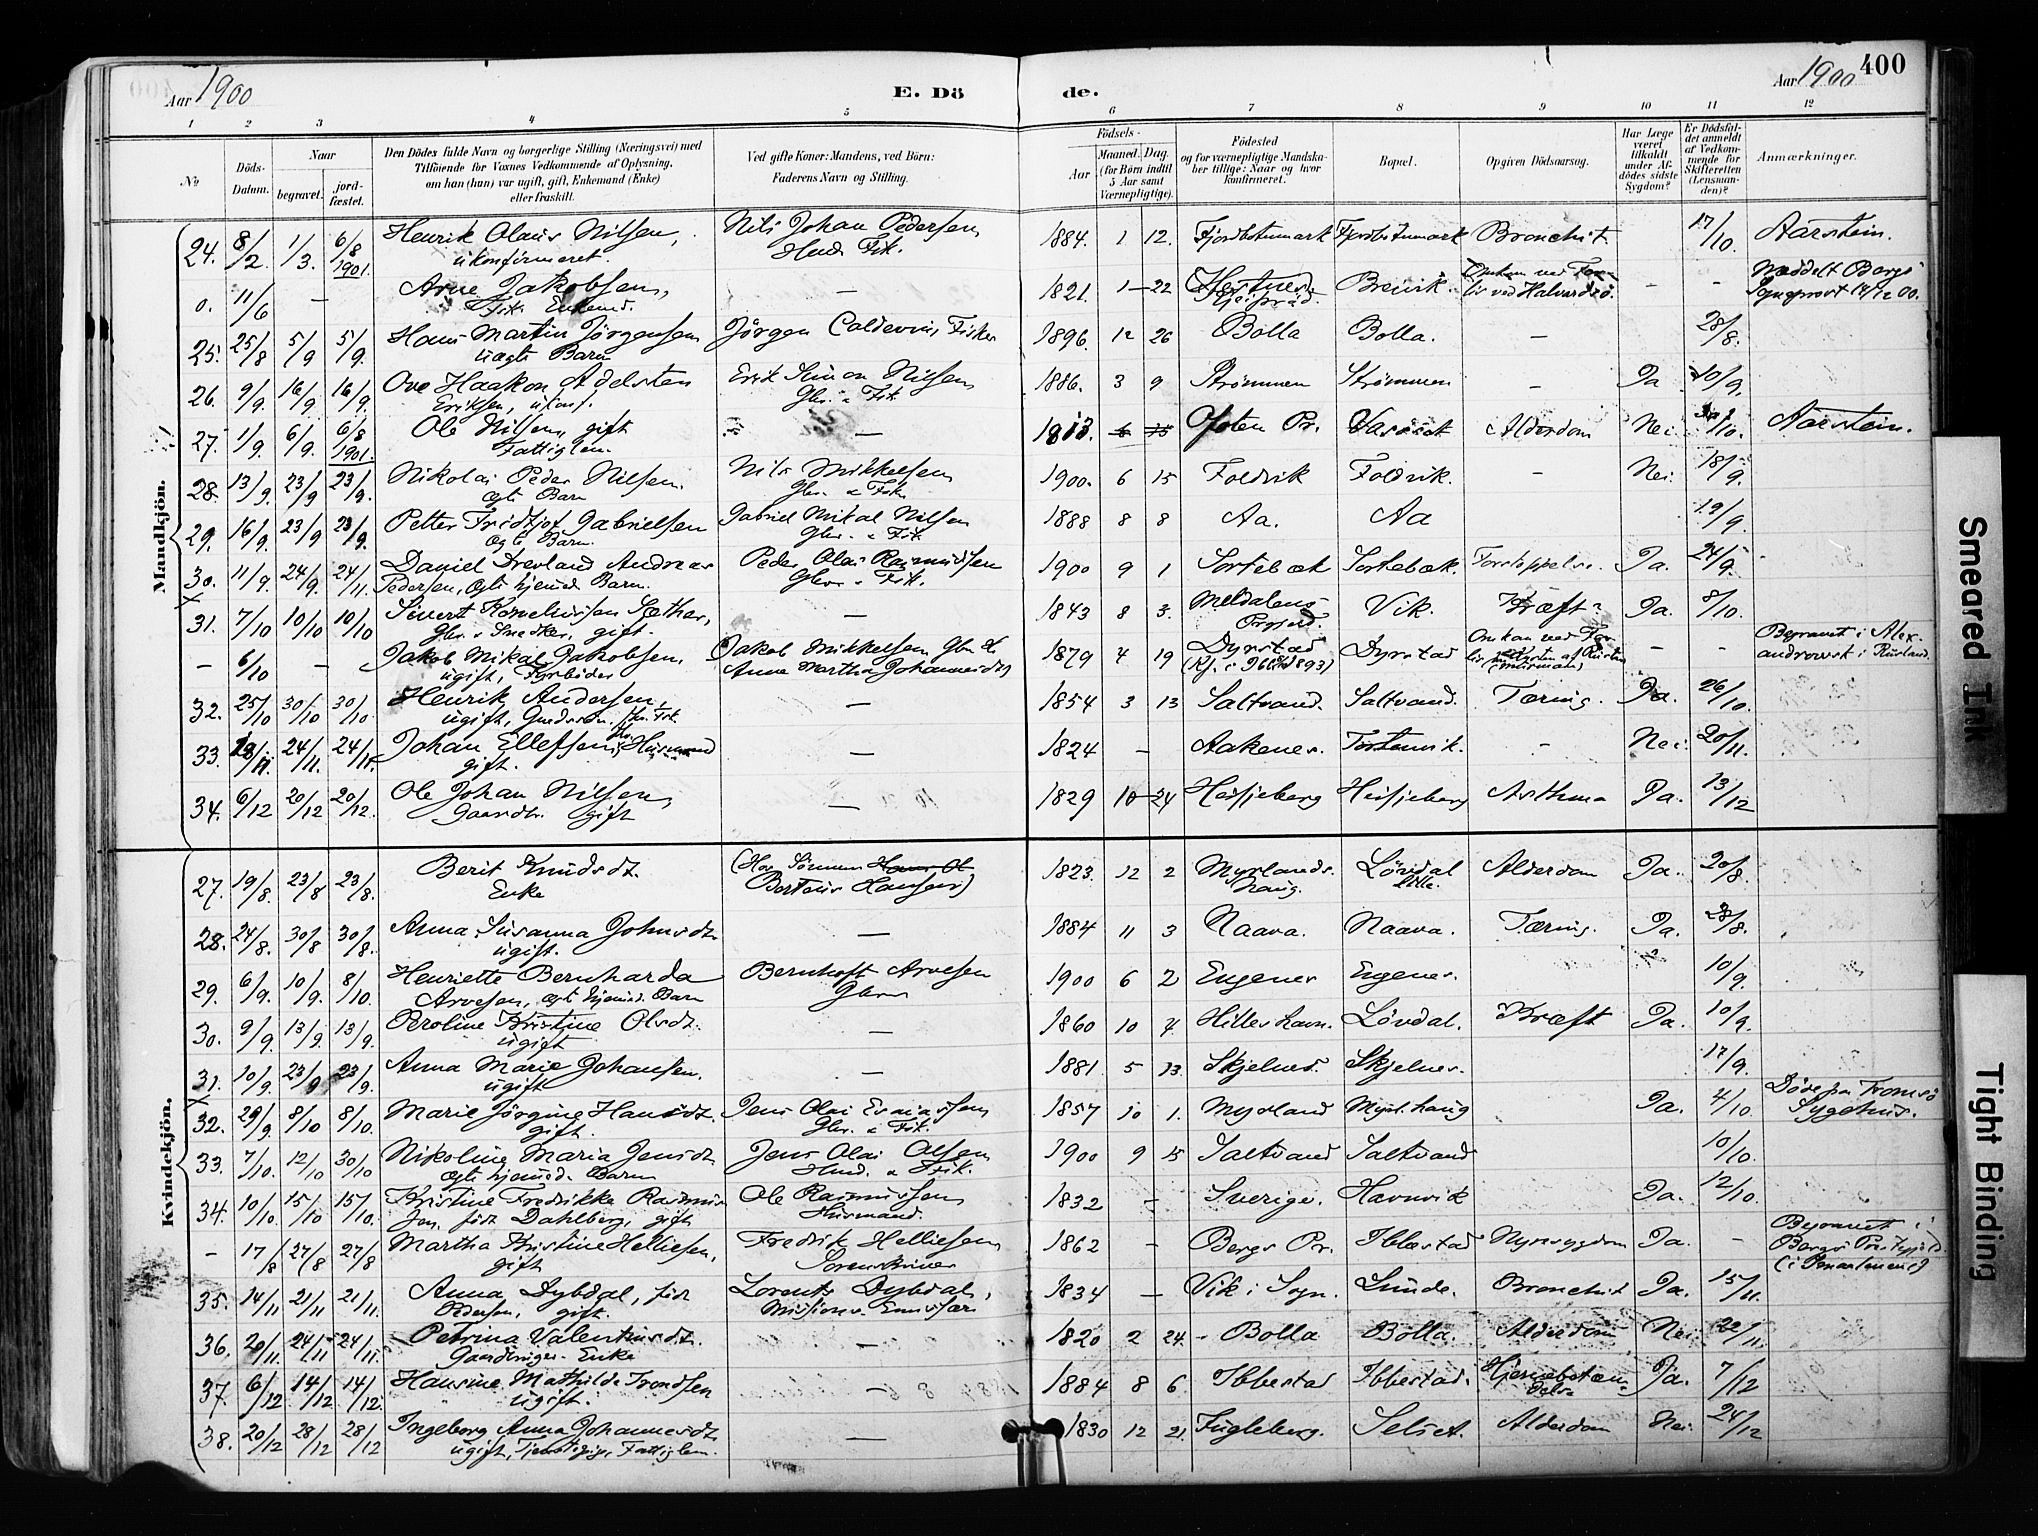 Aar 1900
E. Dö
de.
Aar 1900
400
1 2 3 4 5 6 7 8 9 10 11 12
No
Döds-Datum.
Naar
begravet.
jord-fæstet.
Den Dödes fulde Navn og borgerlige Stilling (Næringsvei) med
Tilföiende for Voxnes Vedkommende af Oplysning,
om han (hun) var ugift, gift, Enkemand (Enke)
eller fraskilt.
Ved gifte Koner: Mandens, ved Börn:
Faderens Navn og Stilling.
Födsels-
Aar
Maaned. Dag.
(for Börn indtil
5 Aar samt
Værnepligtige).
Födested
og for værnepligtige Mandska-
ber tillige: Naar og hvor
konfirmeret.
Bopæl.
Opgiven Dödsaarsag.
Har Læge
været
tilkaldt
under Af-
dödes sidste
Sygdom?
Er Dödsfal-
det anmeldt
af Vedkom-
mende for
Skifteretten
(Lensman-
den)?
Anmærkninger.
Mandkjön.
24. 8/2. 1/3. 6/8 1901. Henrik Olaus Nilsen, ukonfirmeret. Nils Johan Pedersen Husm. Fisk. 1884. 1 12. Fjordbotnmark Fjordbotnmark Bronchit 17/10. Aarstein.
0. 11/6 — Arne Jakobsen, Fisk. Enkemd. — 1821. 1 — 22 Breivik. Omkom ved For- liv ved Halvardsö. - - Meddelt Bergs Sogneprest 14/12 00.
25. 25/8 5/9 5/9. Hans Martin Jörgensen uægte Barn Jörgen Caldevin, Fisker 1896. 12 26 Bolla Bolla. — 28/8.
26. 9/9. 16/9 16/9. Ove Haakon Adelsten Eriksen, ukonf. Erik Simon Nilsen, Gbr. & Fisk. 1886. 3 9 Strömmen Strömmen - Ja 10/9.
27. 1/9. 6/9. 6/8 1901. Ole Nilsen, gift Fattiglem. — 1813. Ofoten Pr. Alderdom Nei /10. Aarstein.
28. 13/9. 23/9 23/9. Nikolai Peder Nilsen. ægte Barn Nils Mikkelsen Gbr. & Fisk. 1900. 6 15 Foldvik Foldvik. - Nei. 18/9.
29. 16/9. 23/9 23/9. Petter Fridtjof Gabrielsen ægte Barn. Gabriel Mikal Nilsen Gbr. & Fisk. 1888 8 8 Aa. Aa 19/9.
30. 11/9. 24/9. 24/11. Daniel Andreas Pedersen, ægte hjemmed. Barn. Peder Olai Rasmussen Gbr. & Fisk. 1900 9 1 Sortebæk Sortebæk. Forstoppelse. Ja. 24/9.
31. 7/10 10/10 10/10 Sivert Korneliussen Sæther, Gbr. & Snedker, gift. — 1843 8 3. Meldalens Prgjeld. Vik. Kræft Ja. 8/10.
- 6/10 — Jakob Mikal Jakobsen, ugift, Fyrböder Jakob Mikkelsen Gbr. & Anne Martha Johannesdtr 1879 4 19 Dyrstad Dyrstad Omkom ved For- liv — — Begravet i Alex- androvsk i Rusland.
32. 25/10 30/10 30/10 Henrik Andersen, ugift, Gaardson. — 1854 3 13 Saltvand. Saltvand. Tæring. Ja. 26/10.
33. 18/11. 24/11. 24/11. Johan Ellefsen, Husmand gift. — 1824 - Aakenes. Tortenvik. - Nei. 20/11.
34. 6/12 20/12 20/12. Ole Johan Nilsen, Gaardbr. gift — 1829 10 — 24 Heisjeberg Heisjeberg Asthma Ja. 13/12
Kvindekjön.
27. 19/8. 23/8 23/8. Berit Knudsdt. Enke (Hos Sönnen Berteus Hansen) 1823. 12 2 Myrlands haug. Lövdal lille. Alderdom Ja. 20/8.
28. 24/8. 30/8 30/8. Anna Susanna Johnsdt. ugift. — 1884 11 3 Naava. Naava. Tæring. Ja. 28/8.
29. 6/9. 10/9. 8/10. Henriette Bernharda Arvesen, ægte hjemmd. Barn Bernhoft Arvesen Gbr. 1900 6 2 Engenes Engenes. 10/9
30. 9/9. 13/9. 13/9. Peroline Kristine Olsdt. ugift — 1860 10 4 Hilleshavn. Lövdal. Kræft Ja. 10/9.
31. 10/9. 23/9 23/9. Anna Marie Johansen. ugift — 1881 5 13. Skjelnes. Skjelnes. 17/9.
32. 29/9. 8/10 8/10. Marie Jörgine Hansdt. gift. Jens Olai Esaiassen Gbr. & Fisk. 1857 10 1. Myrland Myrl. haug Ja. 4/10. Döde paa Tromsö Sygehus.
33. 7/10. 12/10 30/10 Nikoline Maria Jensdt. ægte hjemmed. Barn Jens Olai Olsen Husmd. & Fisk. 1900 9 15 Saltvand Saltvand 10/10.
34. 10/10. 15/10 15/10. Kristine Fredrikke Rasmus- sen, född Dahlberg, gift Ole Rasmussen Husmand. 1832 - Sverige. Havnvik Ja. 12/10.
- 17/8 27/8 27/8 Martha Kristine Helliesen, gift Fredrik Helliesen Sorenskriver 1862 - Bergs Pr. Ibbestad Nyresygdom Ja. - Begravet i Bergs Prestegjeld
35. 14/11. 21/11 21/11. Anna Dybdal, född Pedersen, gift. Lorents Dybdal, Missions. Emissær 1834 — Vik i Sogn. Lunde. Bronchit Ja. 15/11.
36. 20/11. 24/11 24/11. Petrina Valentinsdt. Enke — 1820 2 24. - Bolla Bolla. Alderdom Nei. 22/11.
37. 6/12 14/12 14/12. Hansine Mathilde Trondsen ugift. — 1884 8 6 Ibbestad Ibbestad. Hjernebetæn- delse Ja. 7/12
38. 20/12 28/12 28/12 Ingeborg Anna Johannesdt. ugift, Fattiglem. — 1830 12 21. Fugleberg. Selset. Alderdom Nei. 24/12
Smeared Ink
Tight Binding